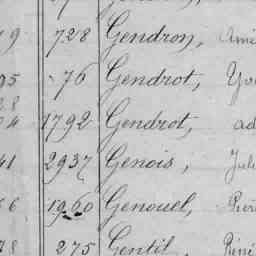 9 728 Gendron,
95 76 Gendrot,
28
04 1792 Gendrot, ad
41 2937 Genois, Jule
66 1960 Genouel, Pier
78 275 Gentil, Réné